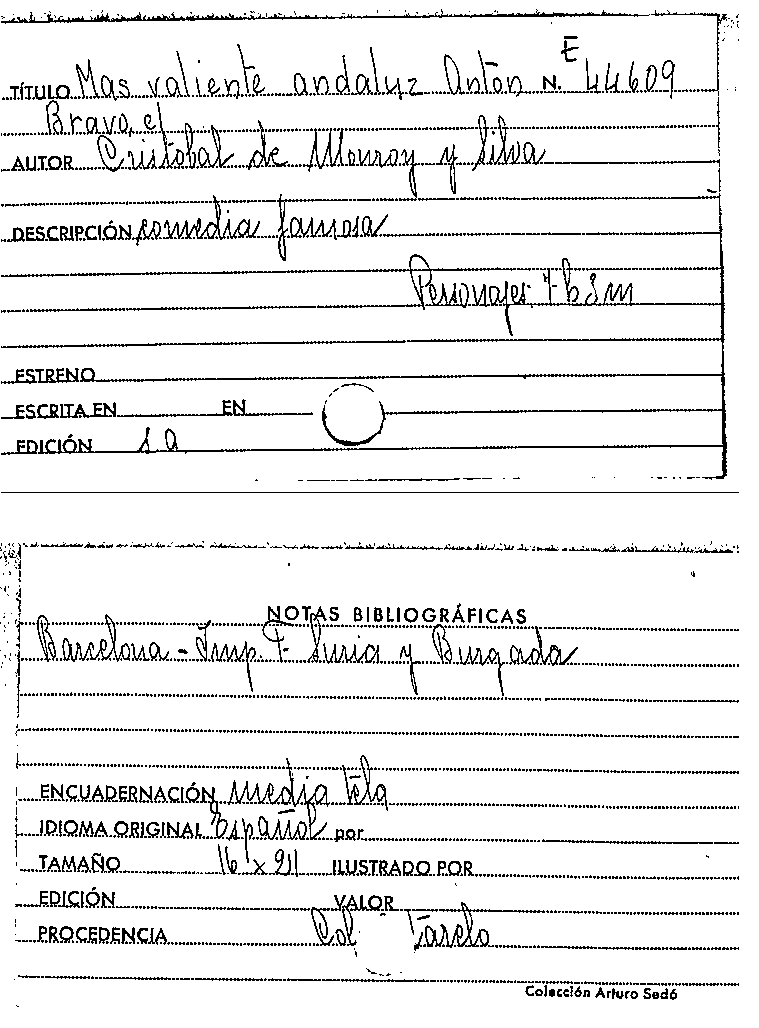 E
TÍTULO Mas valiente andaluz Antón N. 44609
Bravo, el
AUTOR Cristobal de Monroy y Silva
DESCRIPCIÓN comedia famosa
Personajes:
ESTRENO
ESCRITA EN EN
EDICIÓN s a
NOTAS BIBLIOGRÁFICAS
Barcelona - Imp. F. Suria y Burgada
ENCUADERNACIÓN media tela
IDIOMA ORIGINAL Español por
TAMAÑO ILUSTRADO POR
EDICIÓN VALOR
PROCEDENCIA Col
Colección Arturo Sedó